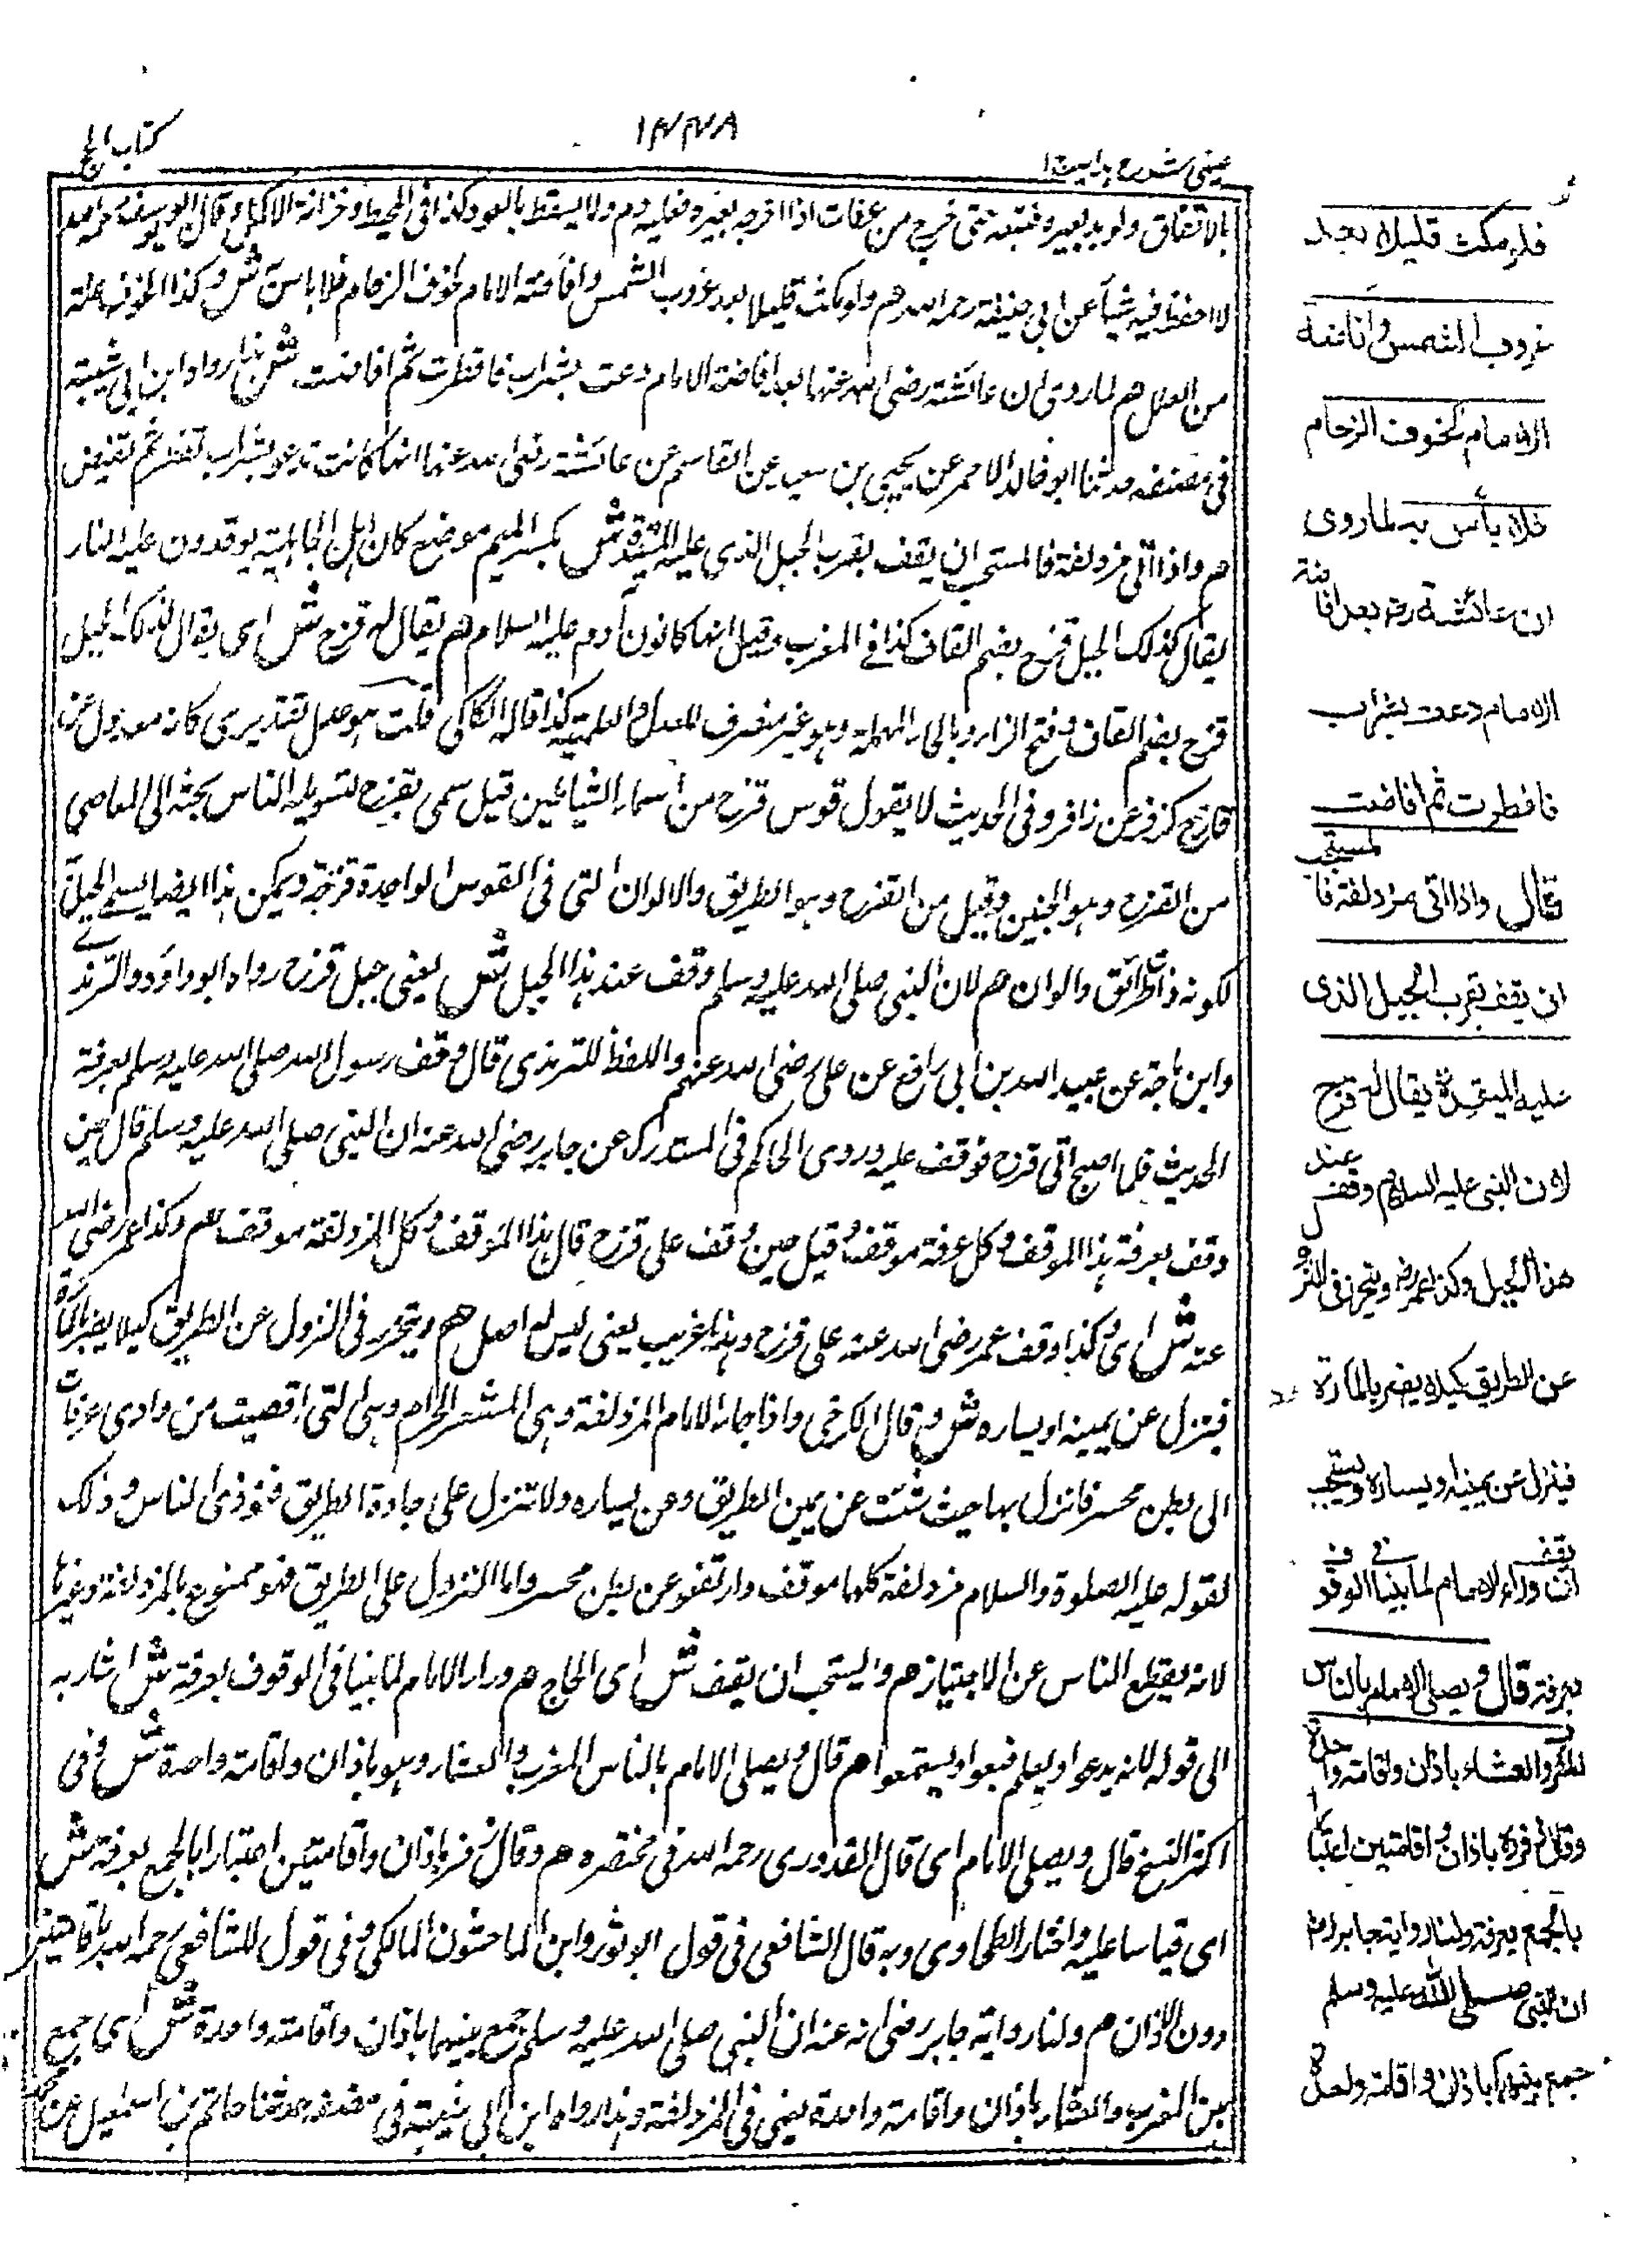 كتاب الحج
١٣٣٨
عيني شرح هداية ١
بالاتفاق ولو ند بعيره فتبعه حتى خرج من عرفات اذا اخرجه بعيره فعليه دم ولا يسقط بالعود كذا في المحيط وخزانة الاكمل وقال ابو يوسف رحمه الله
لا احفظ فيه شيأ عن ابي حنيفة رحمه الله هم ولو مكث قليلا بعد غروب الشمس وافاضة الامام لخوف الزحام فلا باس ش وكذا لخوف علة
من العلل هم لما روى ان عائشة رضي الله عنها بعد افاضة الامام دعت بشراب فافطرت ثم افاضت ش هذا رواه ابن ابي شيبة
في مصنفه حدثنا ابو خالد الاحمر عن يحيى بن سعيد عن القاسم عن عائشة رضي الله عنها انها كانت تدعو بشراب تفطر ثم تفيض
هم واذا اتى مزدلفة فالمستحب ان يقف بقرب الجبل الذي عليه الميقدة ش بكسر الميم موضع كان اهل الجاهلية يوقدون عليه النار
يقال كذلك الجبل قزح بضم القاف كذا في المغرب وقيل انها كانون آدم عليه السلام هم يقال له قزح ش اى يقال لذلك الجبل
قزح بضم القاف وفتح الزاء وبالحاء المهملة وهو غير منصرف للعدل والعلمية كذا قاله الكاكي قلت هو عدل تقديرى كانه معدول عن
قازح كزفر عن زافر وفي الحديث لا يقول قوس قزح من اسماء الشياطين قيل سمى بقزح لتسويله الناس بحثه الى المعاصي
من القزح وهو الجنين وقيل من القزح وهو الطريق والالوان التي في القوس الواحدة قزحة ويمكن هذا ايضا يسمى الجبل
لكونه ذا طرائق والوان هم لان النبي صلى الله عليه وسلم وقف عند هذا الجبل ش يعني جبل قزح رواه ابو داود والترمذي
وابن ماجة عن عبيد الله بن ابي رافع عن علي رضي الله عنهم واللفظ للترمذي قال وقف رسول الله صلى الله عليه وسلم بعرفة
الحديث فلما اصبح اتى قزح فوقف عليه وروى الحاكم في المستدرك عن جابر رضي الله عنه ان النبي صلى الله عليه وسلم قال حين
وقف بعرفة هذا الموقف وكل عرفة موقف وقيل حين وقف على قزح قال هذا الموقف وكل المزدلفة موقف هم وكذا عمر رضي الله
عنه ش اى وكذا وقف عمر رضي الله عنه على قزح وهذا غريب يعني ليس له اصل هم ويتحرز في النزول عن الطريق كيلا يضر بالمارة
فينزل عن يمينه او يساره ش وقال الكرخي واذا جاء الامام المزدلفة وهي المشعر الحرام وهي التي اقصيت من وادى عرفات
الى بطن محسر فانزل بها حيث شئت عن يمين الطريق وعن يساره ولا تنزل على جادة الطريق فتؤذى الناس وذلك
لقوله عليه الصلوة والسلام مزدلفة كلها موقف وارتفعوا عن بطن محسر واما النزول على الطريق فهو ممنوع بالمزدلفة وغيرها
لانه يقطع الناس عن الاجتياز هم والمستحب ان يقف ش اى الحاج هم وراء الامام لما بينا في الوقوف بعرفة ش اشار به
الى قوله لانه يدعو او يعلم فيعوا ويستمعوا هم قال ويصلى الامام بالناس المغرب والعشاء وهو باذان واقامة واحدة ش وفي
اكثر النسخ قال ويصلى الامام اى قال القدورى رحمه الله في مختصره هم وقال زفر باذان واقامتين اعتبارا بالجمع بعرفة ش
اى قياسا عليه واختار الطحاوى وبه قال الشافعي في قول ابو ثور وابن الماجشون المالكي وفي قول للشافعي رحمه الله باقامتين
دون الاذان هم ولنا رواية جابر رضي الله عنه ان النبي صلى الله عليه وسلم جمع بينهما باذان واقامة واحدة ش اى جمع
بين المغرب والعشاء باذان واقامة واحدة يعني في المزدلفة وهذا رواه ابن ابي شيبة في مصنفه حدثنا حاتم بن اسمعيل عن
فلو مكث قليلا بعد
غروب الشمس وافاضة
الامام لخوف الزحام
فلا بأس به لما روى
ان عائشة رض بعد افاضة
الامام دعت بشراب
فافطرت ثم افاضت
قال واذا اتى مزدلفة فالمستحب
ان يقف بقرب الجبل الذى
عليه الميقدة يقال له قزح
لان النبي عليه السلام وقف عند
هذا الجبل وكذا عمر رض ويتحرز في النزول
عن الطريق كيلا يضر بالمارة
فينزل عن يمينه او يساره ويستحب
ان يقف وراء الامام لما بينا في الوقوف
بعرفة قال ويصلى الامام بالناس
المغرب والعشاء باذان واقامة واحدة
وقال زفر ره باذان واقامتين اعتبارا
بالجمع بعرفة ولنا رواية جابر رض
ان النبي صلى الله عليه وسلم
جمع بينهما باذان واقامة واحدة